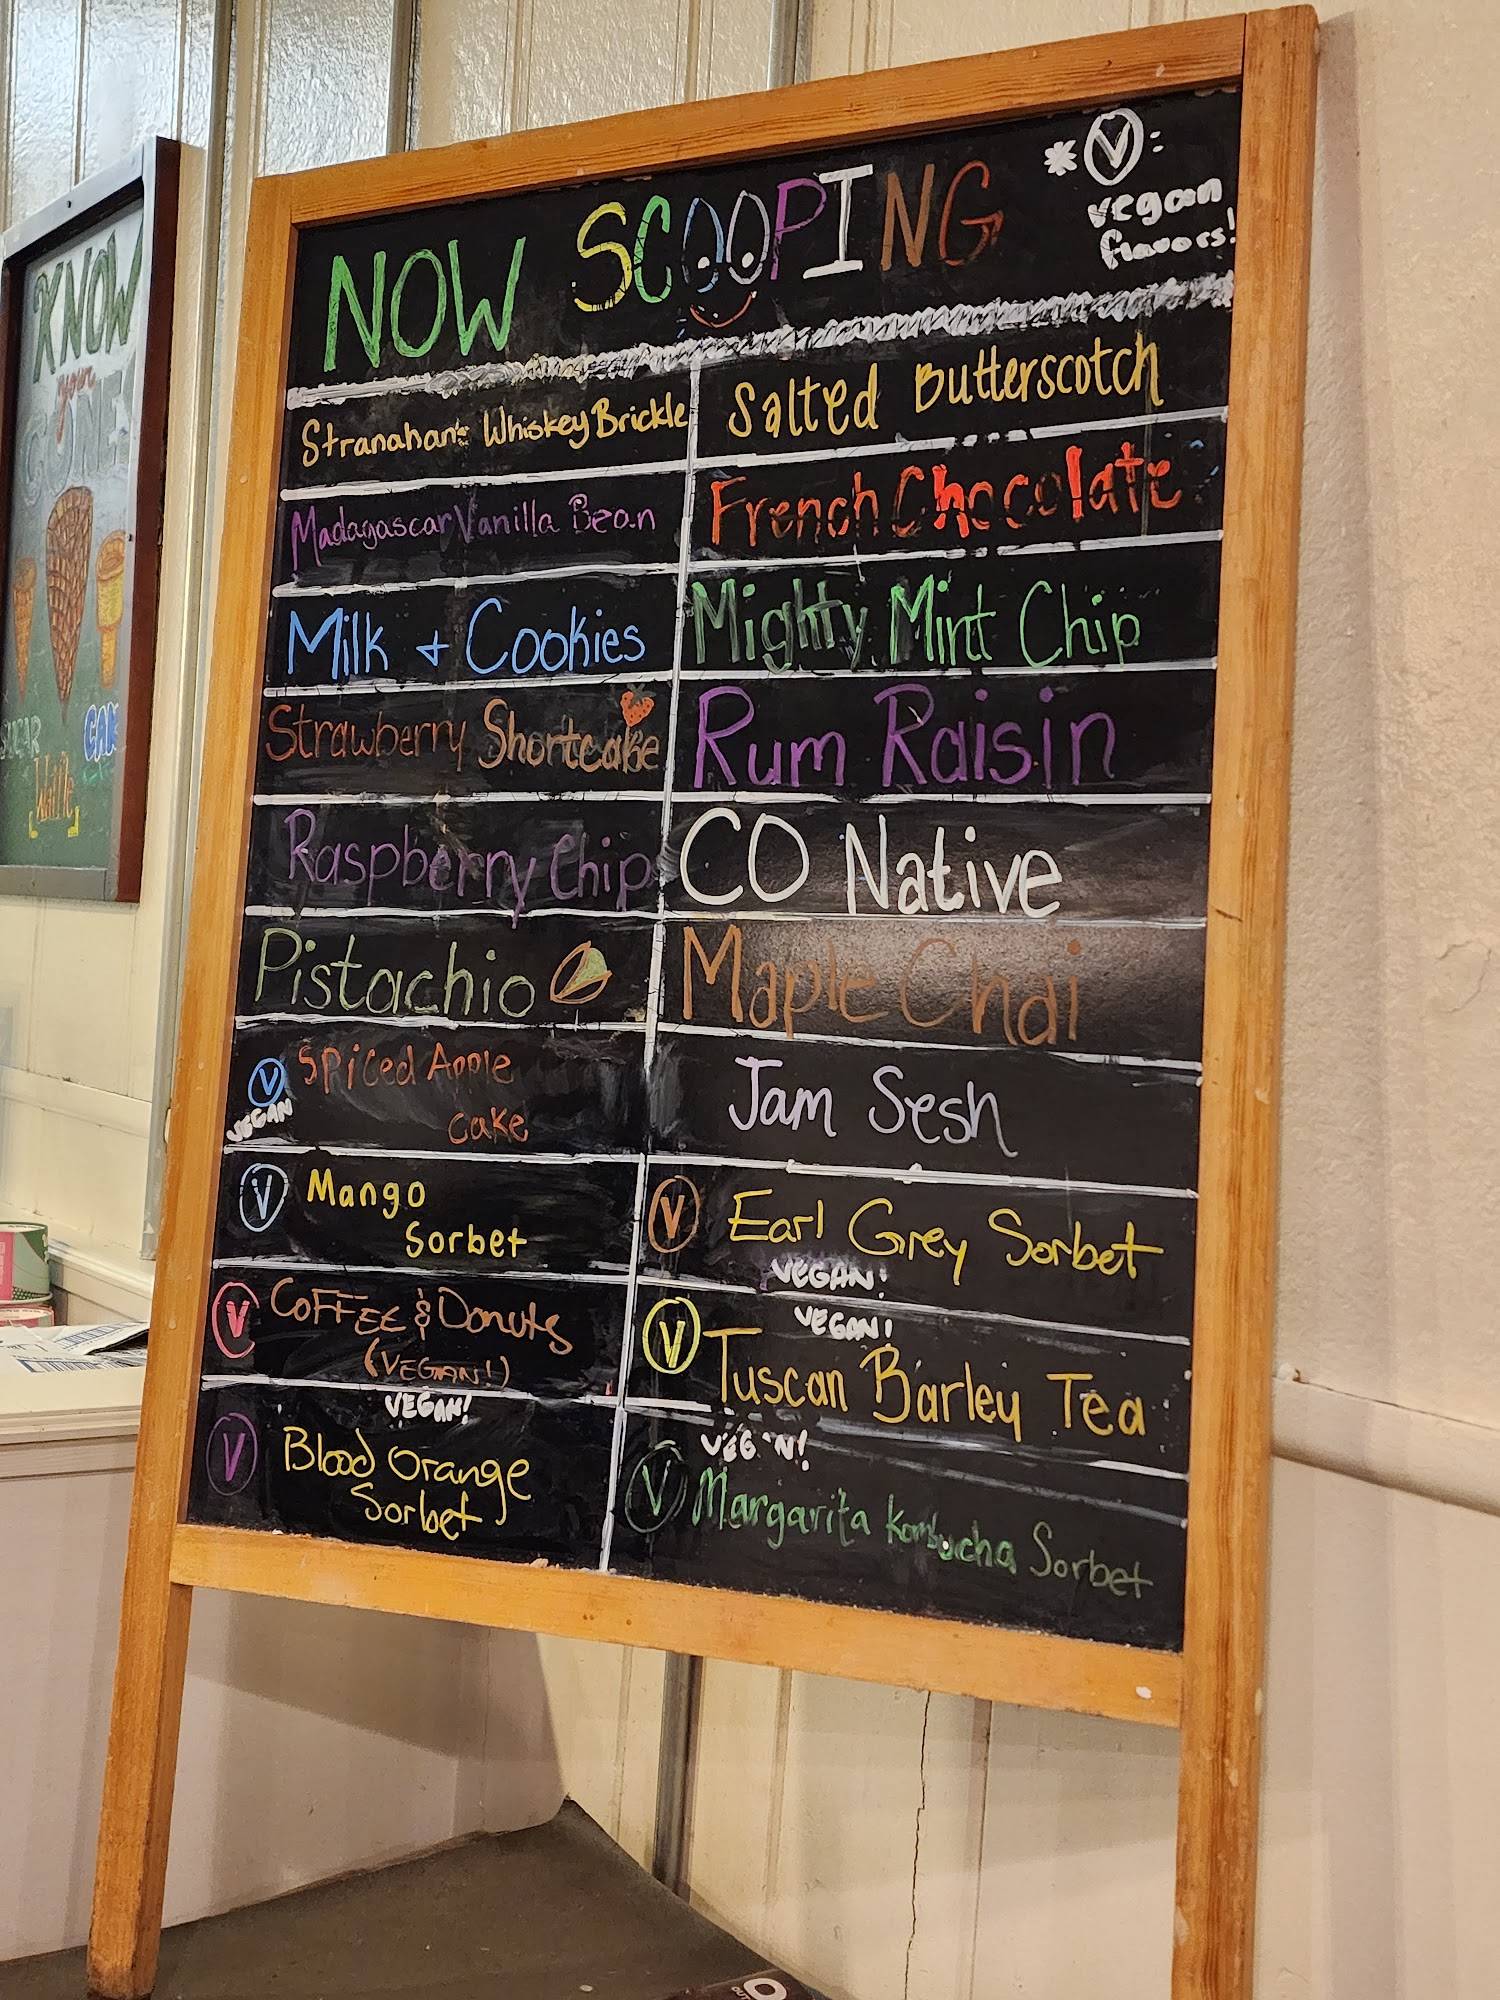 KNOW
your
CONE
SUGAR
Waffle
CAK
NOW SCOOPING
* V:
vegan
flavors!
Stranahan's Whiskey Brickle
Salted Butterscotch
Madagascar Vanilla Bean
French Chocolate
Milk + Cookies
Mighty Mint Chip
Strawberry Shortcake
Rum Raisin
Raspberry Chip
CO Native
Pistachio
Maple Chai
V Spiced Apple
VEGAN
cake
Jam Sesh
V Mango
Sorbet
V Earl Grey Sorbet
VEGAN!
V COFFEE & Donuts
(VEGAN!)
VEGAN!
V Tuscan Barley Tea
VEGAN!
V Blood Orange
Sorbet
VEGAN!
V Margarita Kombucha Sorbet